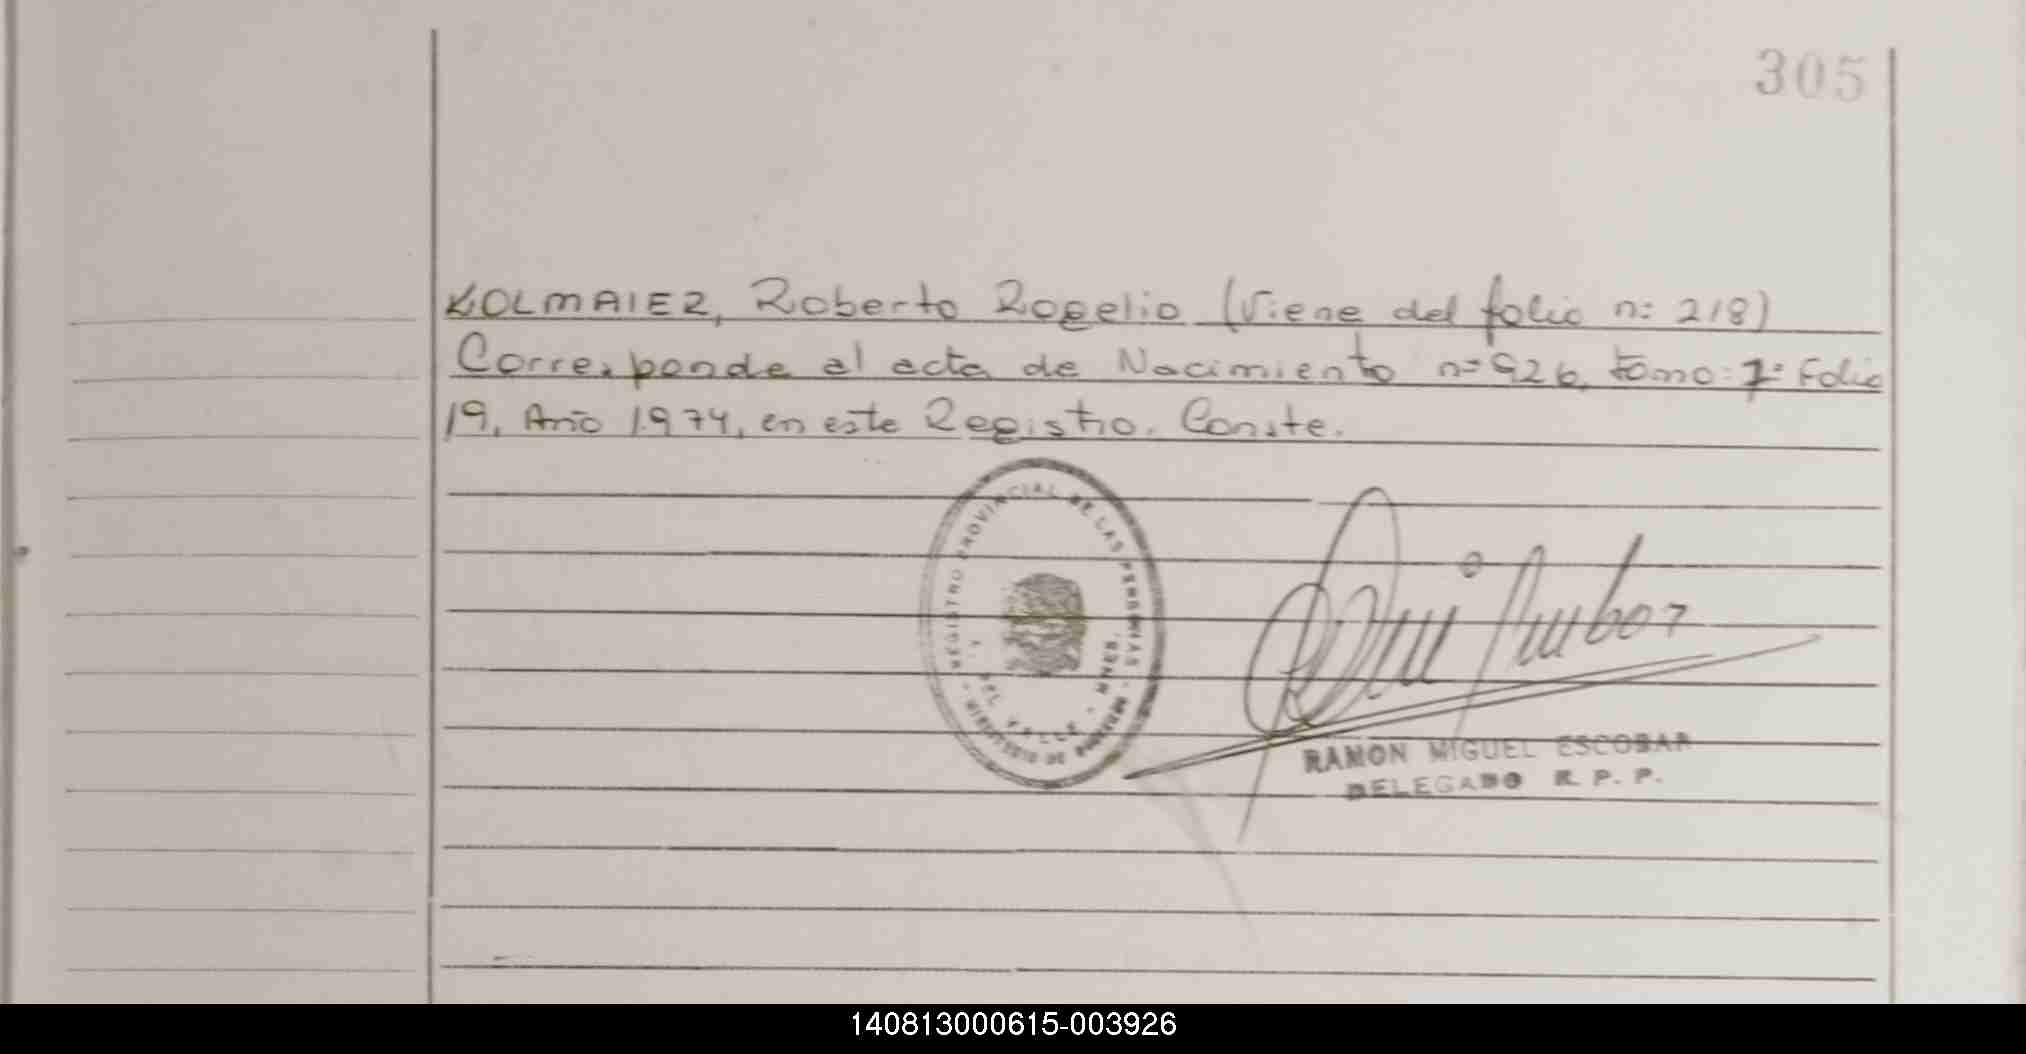 305
KOLMAIER, Roberto Rogelio (Viene del folio n: 218)
Corresponde al acta de Nacimiento nº 926, tomo: 1º Folio
19, Año 1974, en este Registro. Conste.
REGISTRO PROVINCIAL DE LAS PERSONAS
DEL VALLE - MNES.
MINISTERIO DE GOBIERNO
RAMON MIGUEL ESCOBAR
DELEGADO R. P. P.
140813000615-003926